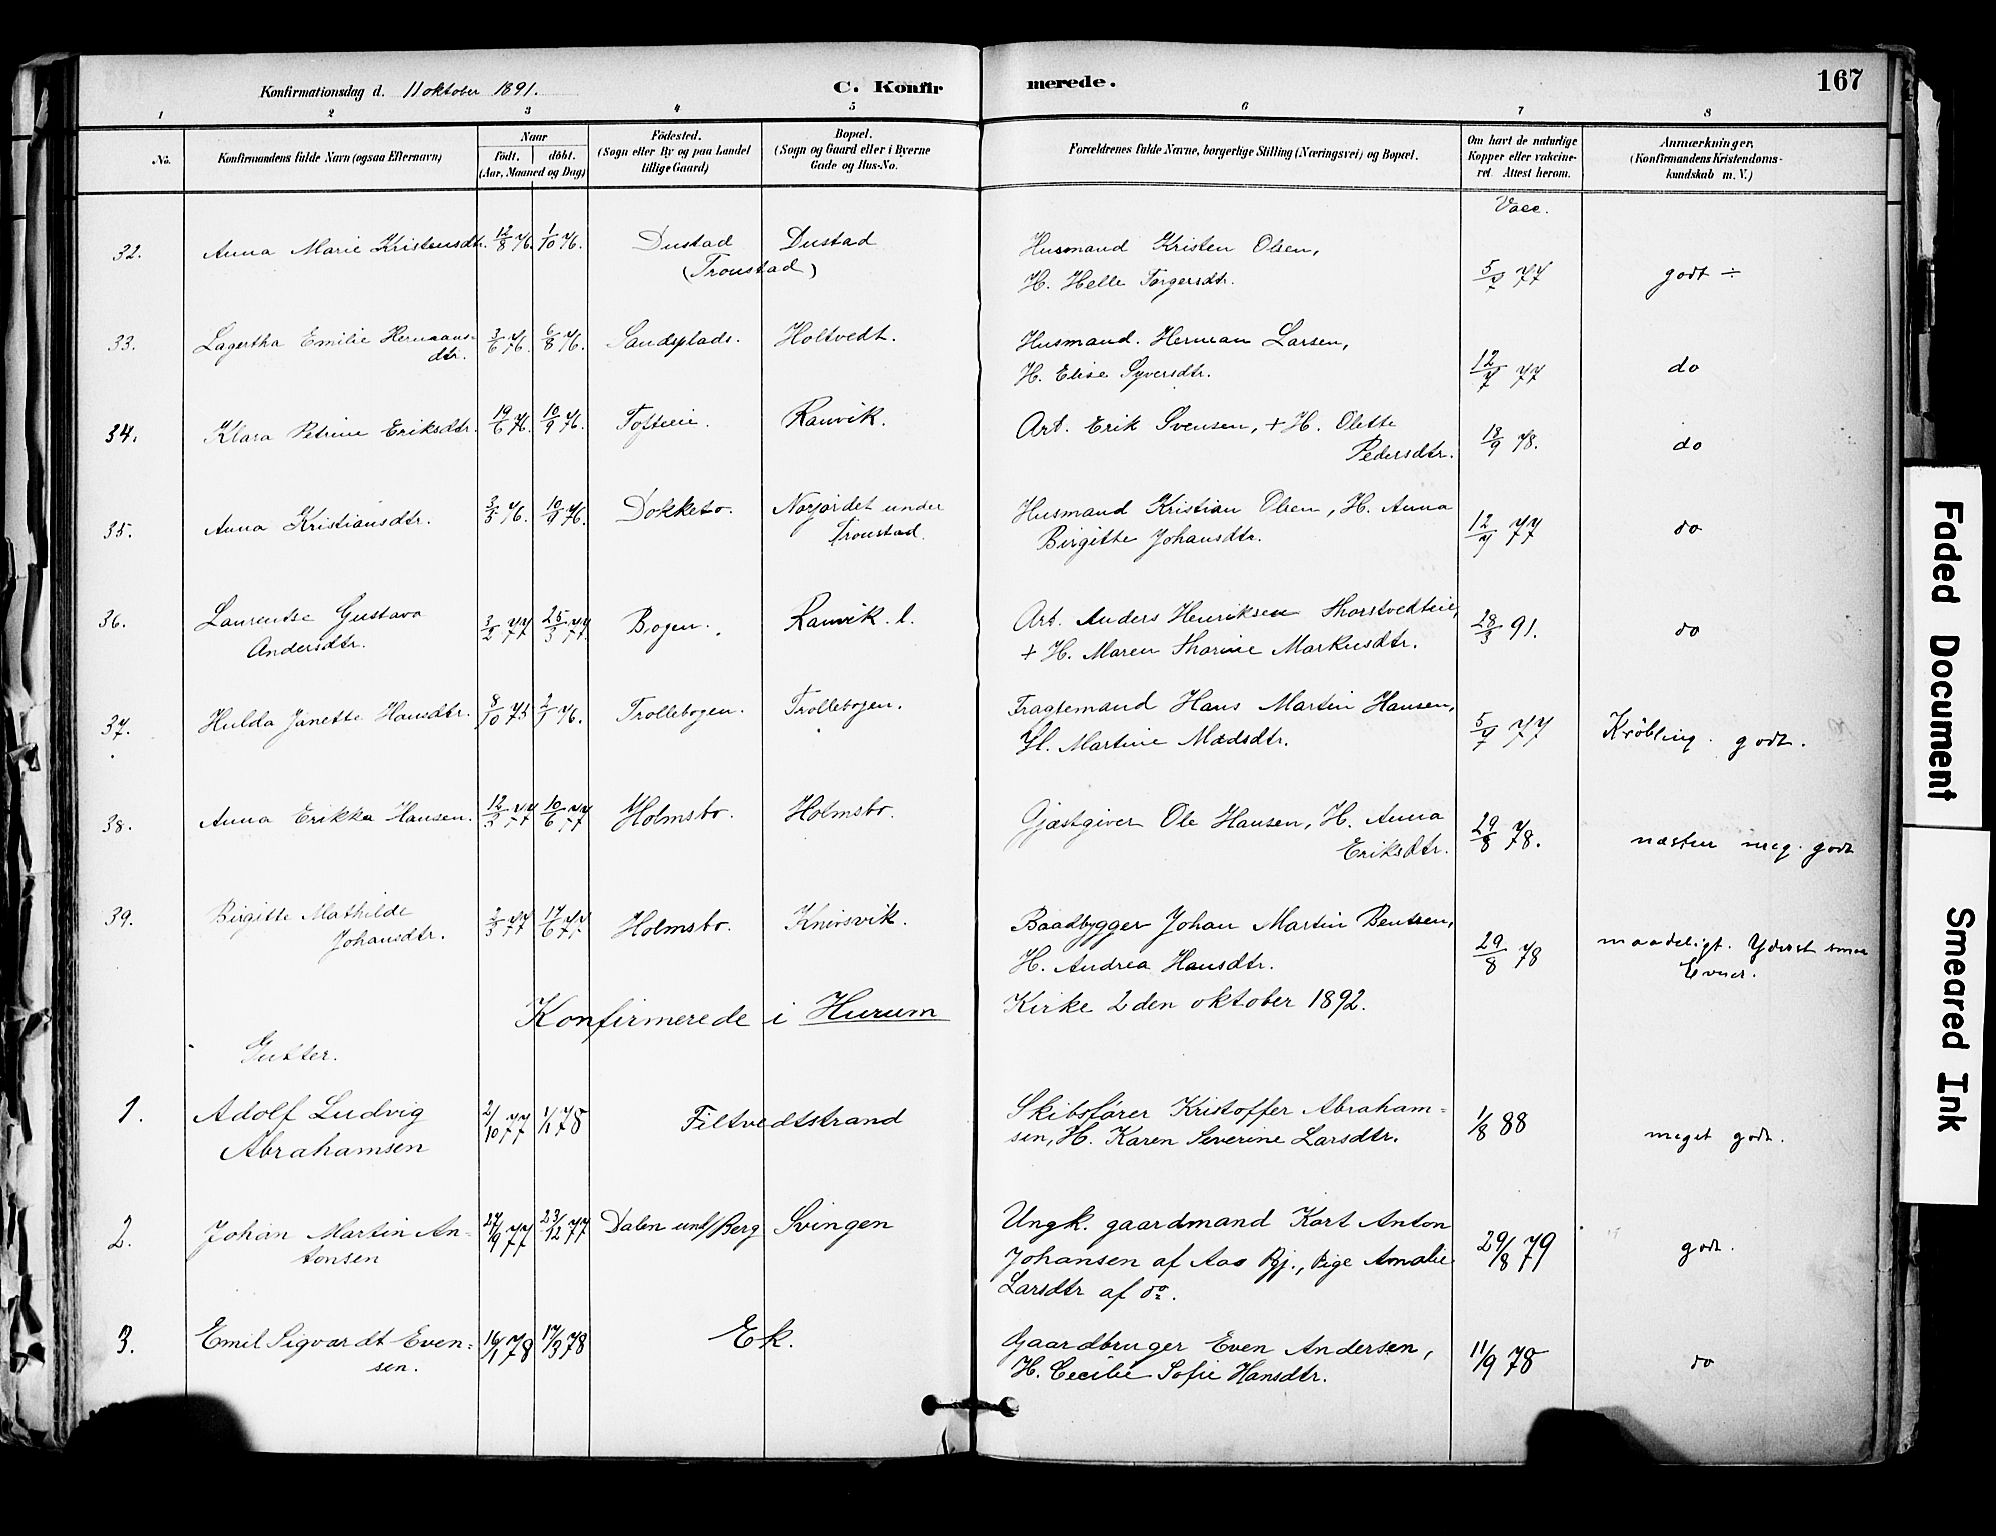 Konfirmationsdag d. 11 oktober 1891. C. Konfirmerede. 167
1 2 3 4 5 6 7 8
No.
Konfirmandens fulde Navn (ogsaa Efternavn)
Naar
født. døbt.
(Aar, Maaned og Dag)
Fødested.
(Sogn eller By og paa Landet
tillige Gaard)
Bopæl.
(Sogn og Gaard eller i Byerne
Gade og Hus-No.
Forældrenes fulde Navne, borgerlige Stilling (Næringsvei) og Bopæl.
Om havt de naturlige
Kopper eller vakcine-
ret. Attest herom.
Anmærkninger.
(Konfirmandens Kristendoms-
kundskab m. V.)
Vacc.
32. Anna Marie Kristensdtr. 12/8 76. 1/10 76. Dustad Dustad Husmand Kristen Olsen,
(Tronstad) H. Helle Torgersdtr. 5/7 77 godt ÷
33. Lagertha Emilie Hermans- 3/6 76. 6/8 76. Sandsplads. Holtvedt. Husmand. Herman Larsen,
dtr. H. Elise Syversdtr. 12/7 77 do
34. Klara Petrine Eriksdtr. 19/6 76. 10/9 76. Tofteeie. Ranvik. Arb. Erik Svensen, + H. Olette
Pedersdtr. 18/9 78. do
35. Anna Kristiansdtr. 3/5 76. 10/9 76. Dokkebo. Norjordet under Husmand Kristian Olsen, H. Anna
Tronstad. Birgitte Johansdtr. 12/7 77 do
36. Laurentse Gustava 3/2 77 25/3 77 Bogen. Ranvik. l. Arb. Anders Henriksen Thorstvedteie,
Andersdtr. + H. Maren Thorine Markusdtr. 28/3 91. do
37. Hulda Janette Hansdtr. 8/10 75 2/1 76. Trollebogen. Trollebogen. Fragtemand Hans Martin Hansen,
H. Martine Madsdtr. 5/7 77 Krøbling. godt.
38. Anna Erikka Hansen. 12/3 77 10/6 77 Holmsbo. Holmsbo. Gjæstgiver Ole Hansen, H. Anna
Eriksdtr. 29/8 78. næsten meg. godt
39. Birgitte Mathilde 2/3 77 17/6 77. Holmsbo. Knivsvik. Baadbygger Johan Martin Bentsen,
Johansdtr. H. Andrea Hansdtr. 29/8 78 maadeligt. Yderst smaa
Evner.
Konfirmerede i Hurum Kirke 2den oktober 1892.
Gutter.
1. Adolf Ludvig 2/10 77 1/1 78 Filtvedtstrand Skibsfører Kristoffer Abraham=
Abrahamsen sen, H. Karen Severine Larsdtr. 1/8 88 meget godt.
2. Johan Martin An- 27/9 77 23/12 77 Dalen und/Berg Svingen Ungk. gaardmand Kart Anton
tonsen Johansen af Aas Pgj., Pige Amalie 29/8 79 godt.
Larsdtr af do.
3. Emil Sigvardt Even= 16/1 78 17/3 78 Ek. Gaardbruger Even Andersen,
sen. H. Cecilie Sofie Hansdtr. 11/9 78 do
Faded Document
Smeared Ink